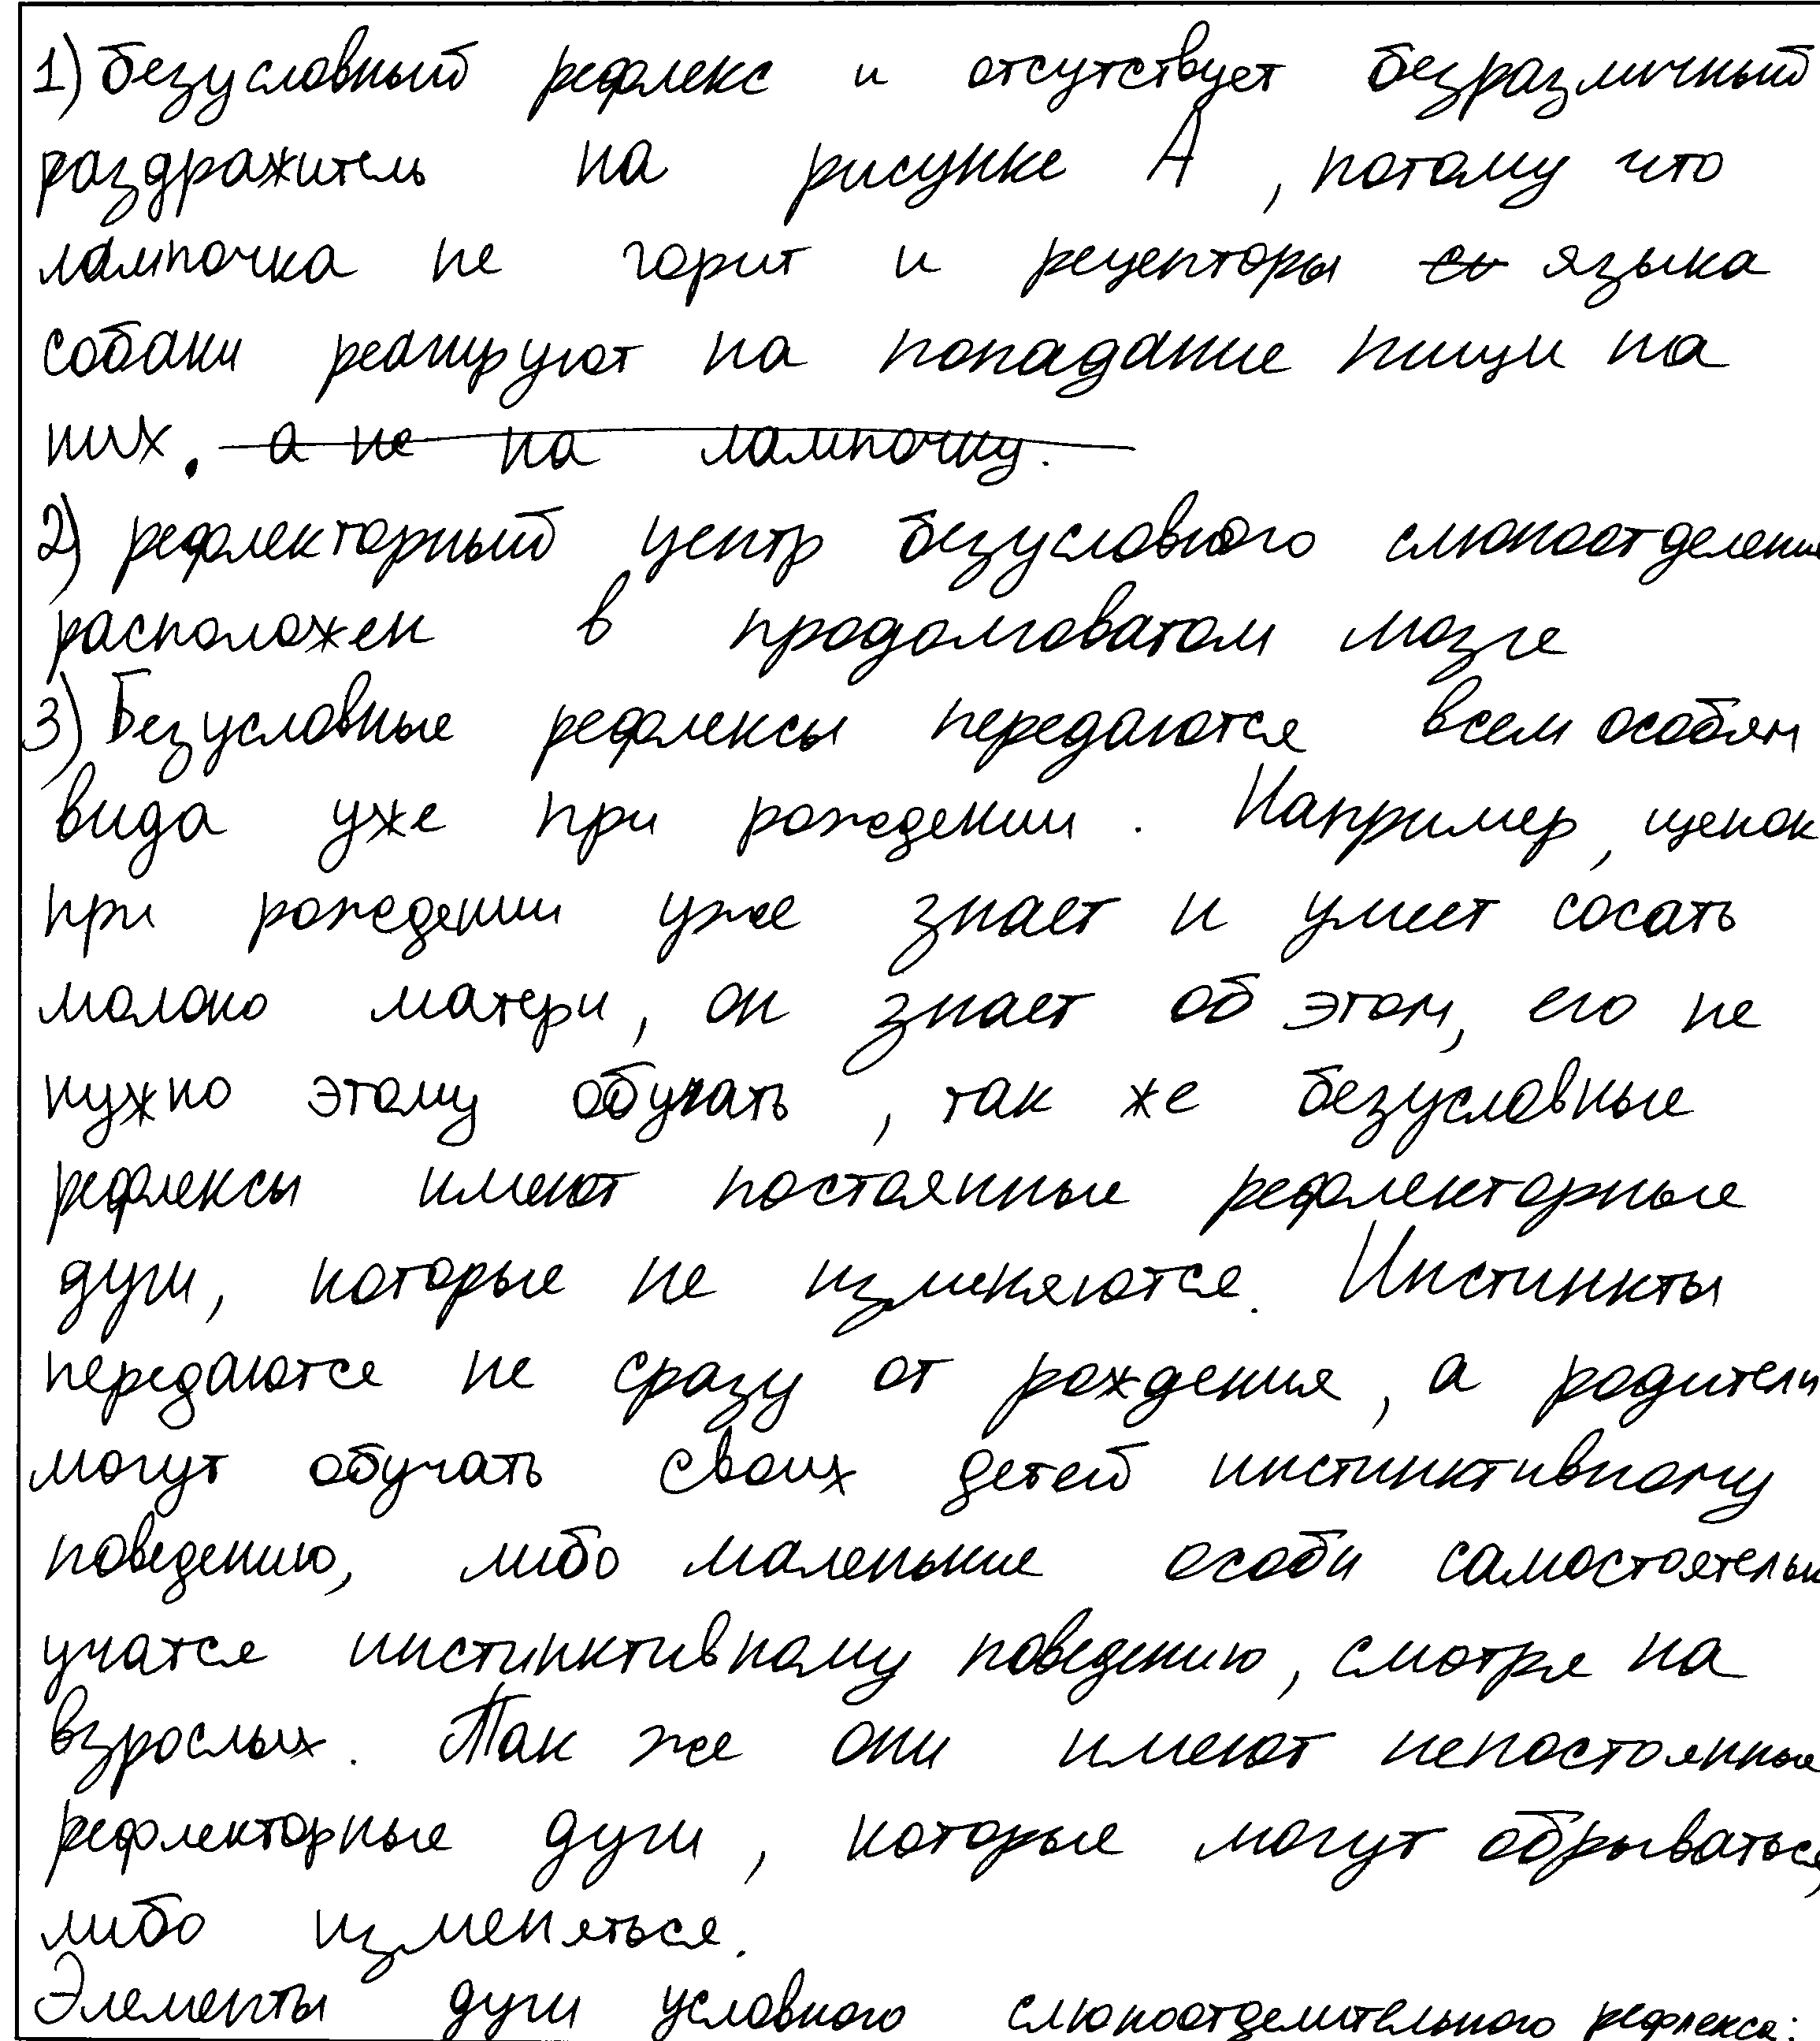 1) безусловный рефлекс и отсутствует безразличный
раздражитель на рисунке А, потому что
лампочка не горит и рецепторы со языка
собаки реагируют на попадание пищи на
них. а не на лампочку.
2) рефлекторный центр безусловного слюноотделения
расположен в продолговатом мозге
3) Безусловные рефлексы передаются всем особям
вида уже при рождении. Например, щенок
при рождении уже знает и умеет сосать
молоко матери, он знает об этом, его не
нужно этому обучать, так же безусловные
рефлексы имеют постоянные рефлекторные
дуги, которые не изменяются. Инстинкты
передаются не сразу от рождения, а родители
могут обучать своих детей инстинктивному
поведению, либо маленькие особи самостоятельн
учатся инстинктивному поведению, смотря на
взрослых. Так же они имеют непостоянные
рефлекторные дуги, которые могут обрываться,
либо изменяться.
Элементы дуги условного слюноотделительного рефлекса: